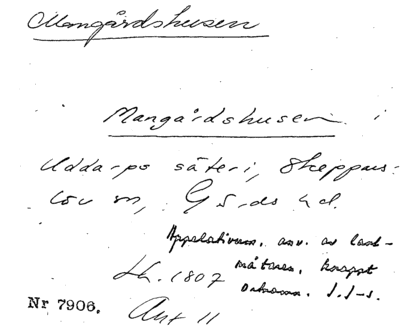 Mangårdshusen
Mangårdshusen i
Uddarps säteri, Skepps-
löv sn, Gärds hd.
Appelativum, anv. av lant-
mätaren, knappt
Lk. 1807
ortnamn. J.J-s.
Nr 7906. Akt 11